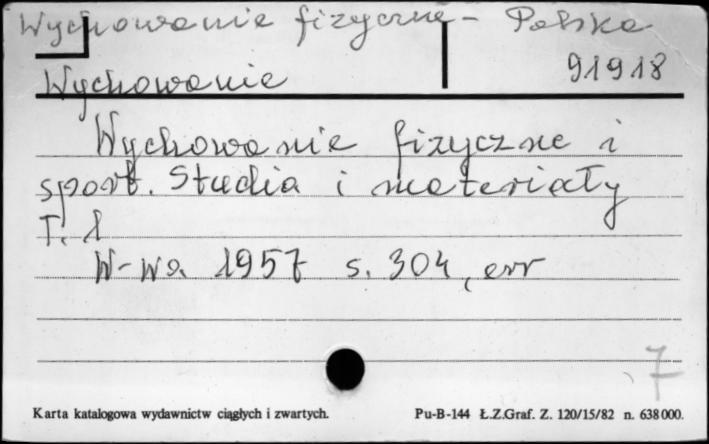 Wychowanie fizyczne - Polska
Wychowanie 91918
Wychowanie fizyczne i
sport. Studia i materiały
T. 1
W-wa. 1957 s. 304, err
7
Karta katalogowa wydawnictw ciągłych i zwartych. Pu-B-144 Ł.Z.Graf. Z. 120/15/82 n. 638000.